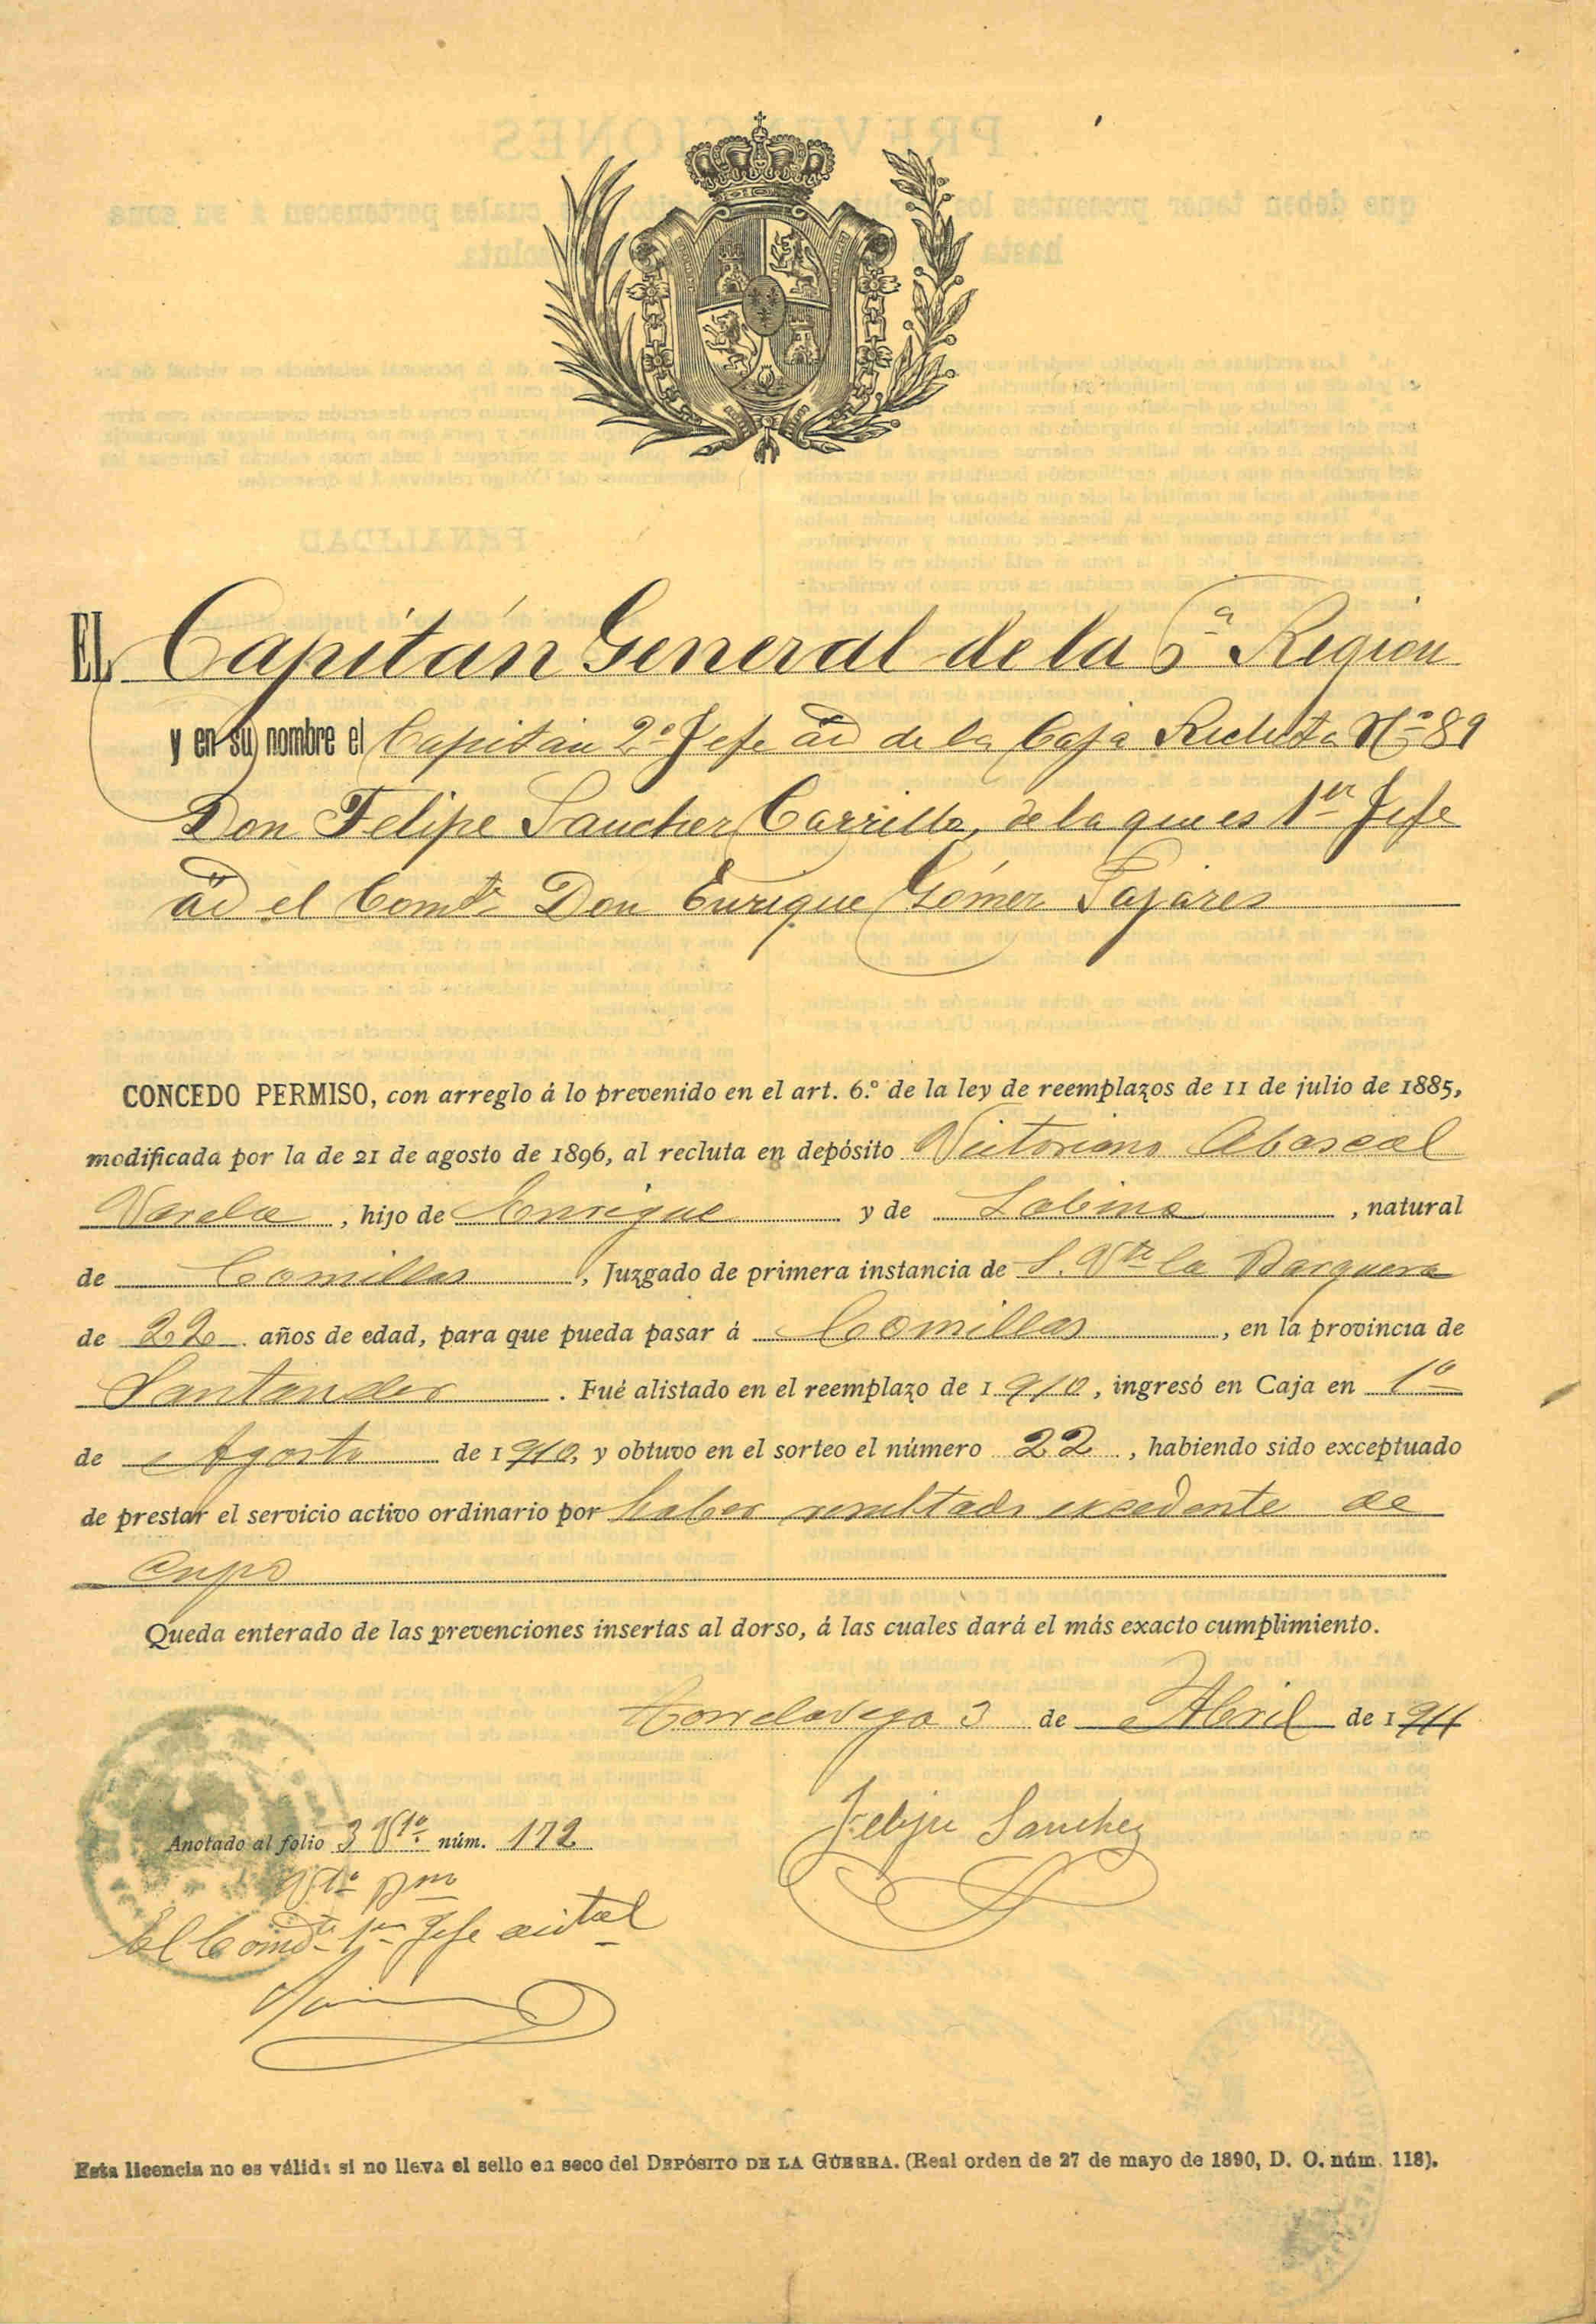 EL Capitán General de la 6ª Region
y en su nombre el Capitán 2º Jefe acc de la Caja Recluta Nº 89
Don Felipe Sanchez Carrillo, de la que es 1er Jefe
el Comte Don Enrique Gómez Pajares
CONCEDO PERMISO, con arreglo á lo prevenido en el art. 6.º de la ley de reemplazos de 11 de julio de 1885,
modificada por la de 21 de agosto de 1896, al recluta en depósito Victoriano Abascal
Varela, hijo de Enrique y de Sabina, natural
de Comillas, Juzgado de primera instancia de S. Vte la Barquera
de 22 años de edad, para que pueda pasar á Comillas, en la provincia de
Santander. Fué alistado en el reemplazo de 1910, ingresó en Caja en 1º
de Agosto de 1910, y obtuvo en el sorteo el número 22, habiendo sido exceptuado
de prestar el servicio activo ordinario por haber resultado excedente de
cupo
Queda enterado de las prevenciones insertas al dorso, á las cuales dará el más exacto cumplimiento.
Torrelavega 3 de Abril de 1911
Felipe Sanchez
Anotado al folio 3 Vto núm. 172
El Comdte 1er Jefe accital
Esta licencia no es válida si no lleva el sello en seco del DEPÓSITO DE LA GUERRA. (Real orden de 27 de mayo de 1890, D. O. núm. 118).